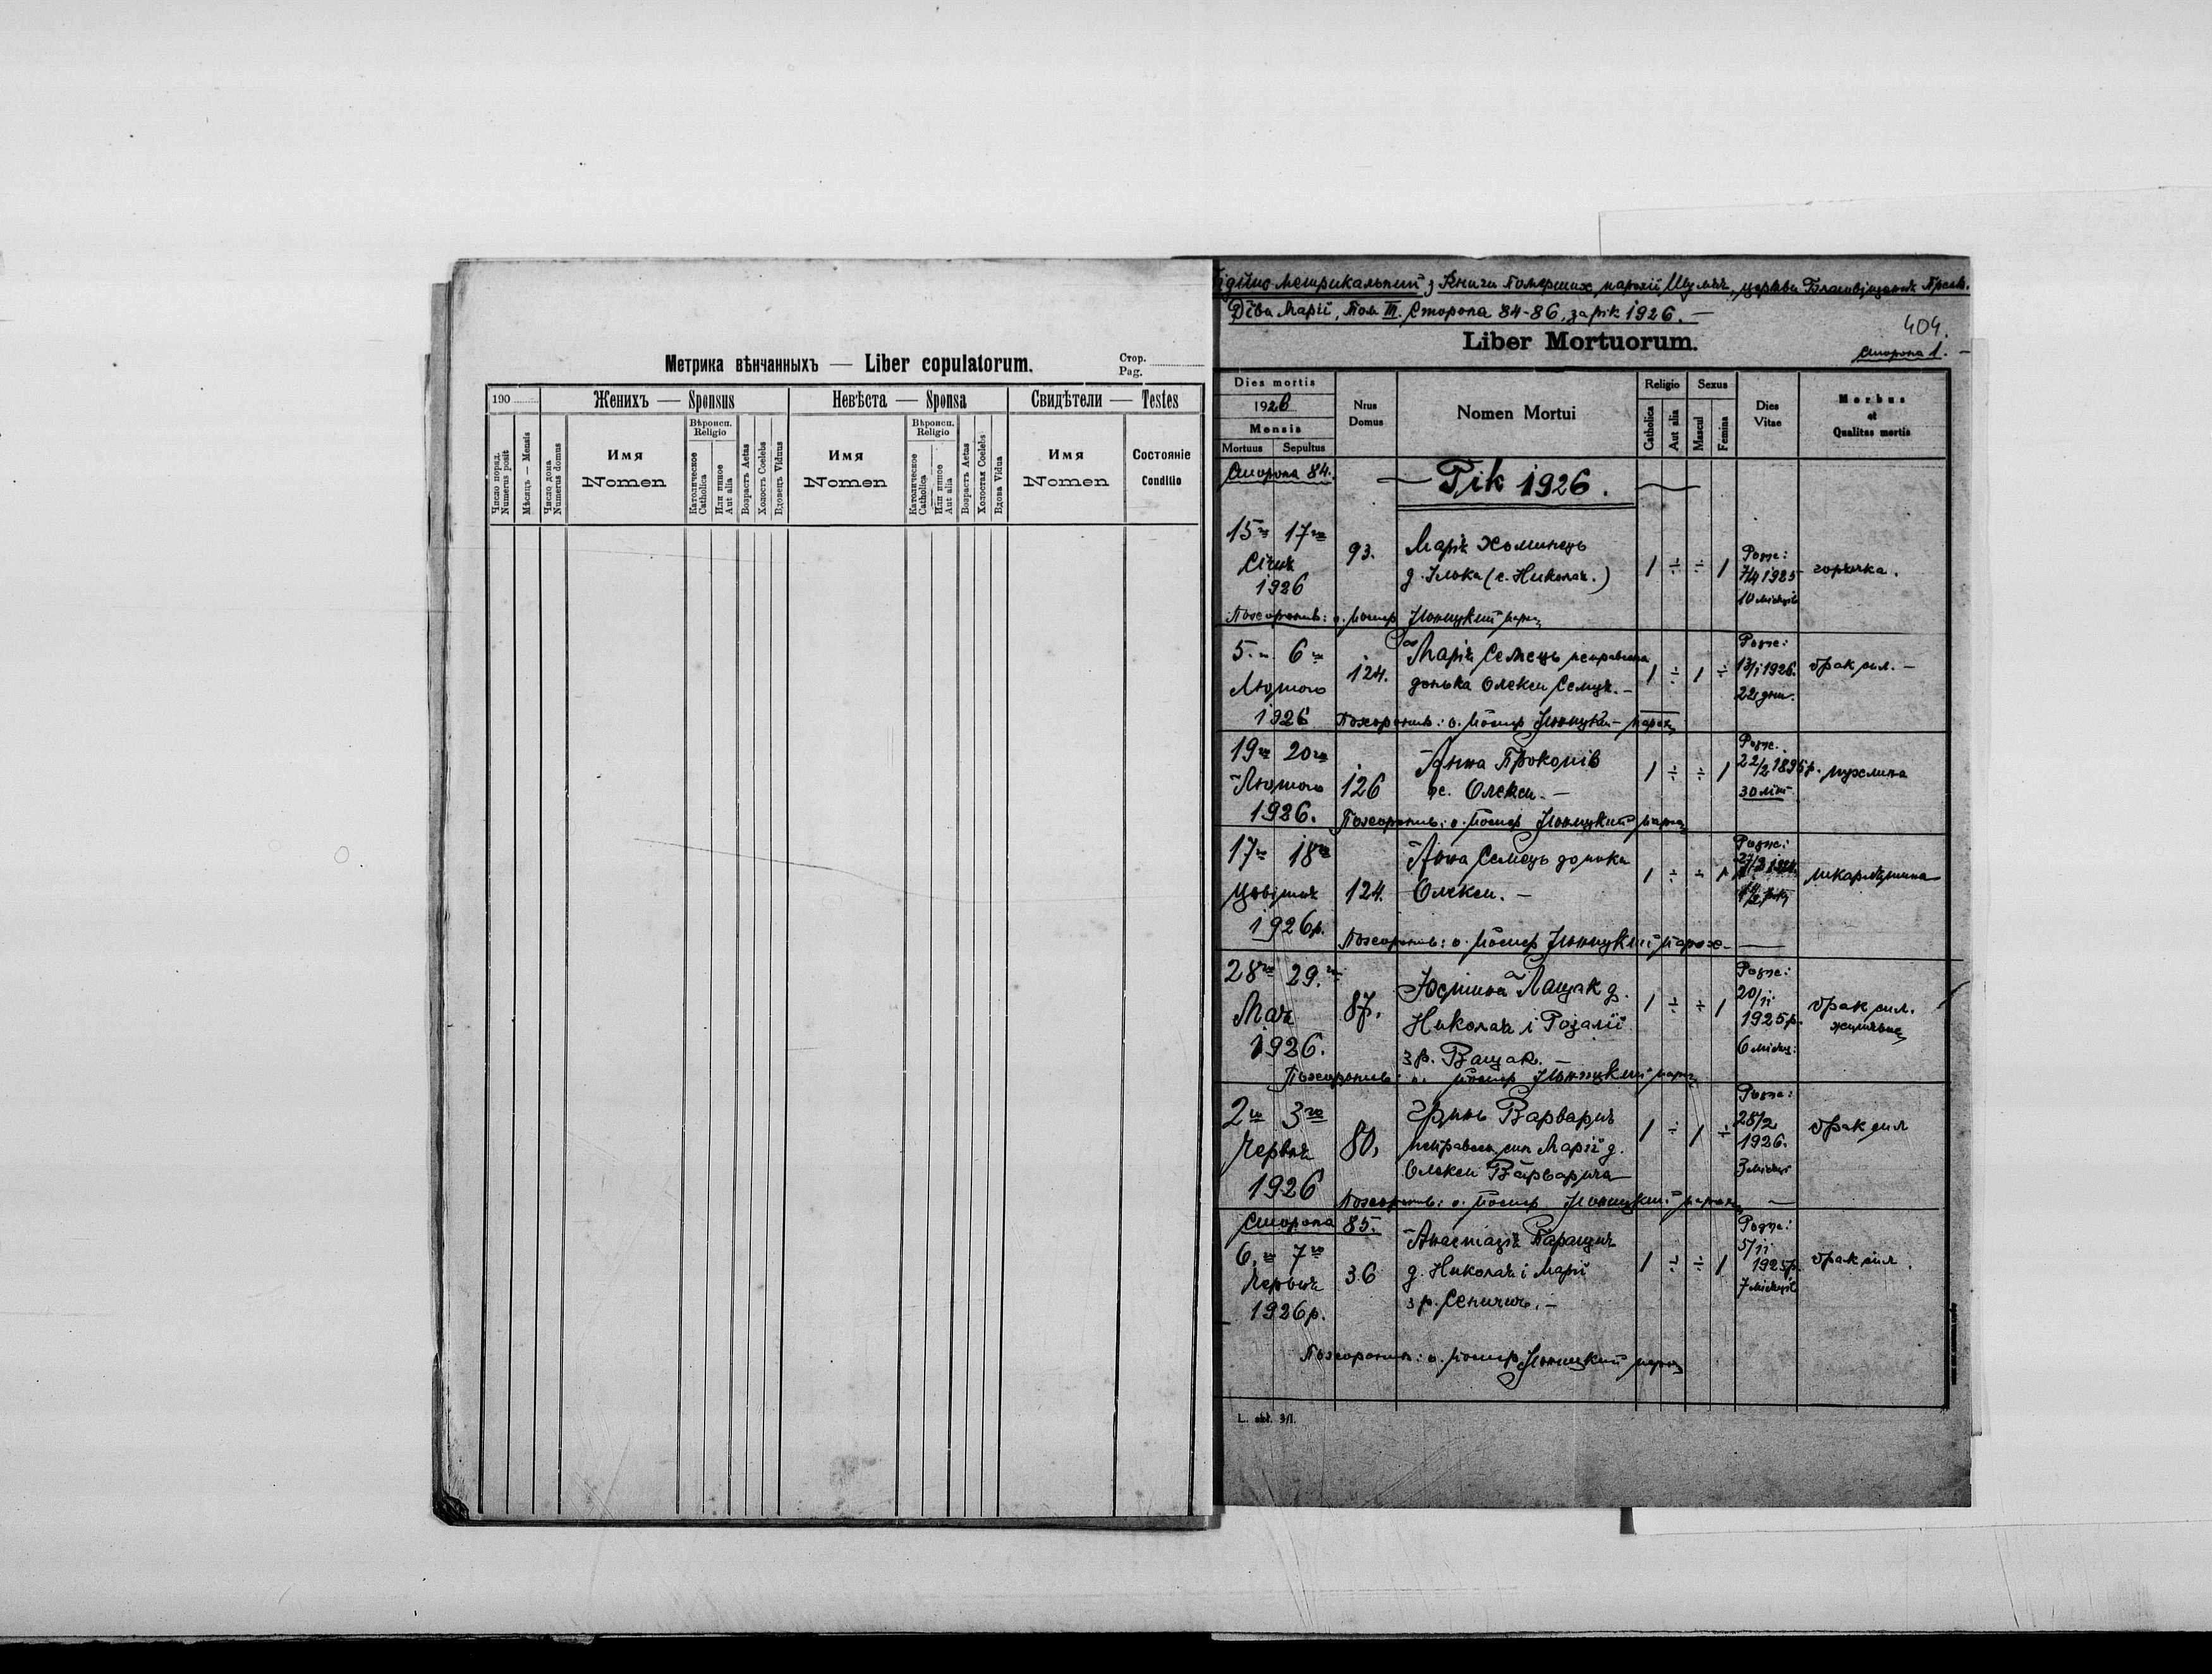 Метрика вѣнчанныхъ — Liber copulatorum.
Стор.
Pag.
190
Женихъ — Sponsus
Невѣста — Sponsa
Свидѣтели — Testes
Число поряд. Numerus posit
Мѣсяцъ — Mensis
Число дома Numerus domus
Имя
Nomen
Вѣроисп.
Religio
Католическое Catholica
Или иное Aut alia
Возрастъ Aetas
Холостъ Coelebs
Вдовецъ Viduus
Имя
Nomen
Вѣроисп.
Religio
Католическое Catholica
Или иное Aut alia
Возрастъ Aetas
Холостая Coelebs
Вдова Vidua
Имя
Nomen
Состояніе
Conditio
метрикальний з Книги Померших парохії церкви
Діви Марії, Том III. Сторона 84-86, за рік 1926. —
404.
Liber Mortuorum.
сторона 1. —
Dies mortis
1926
Mensis
Mortuus Sepultus
Nrus
Domus
Nomen Mortui
Religio
Catholica
Aut alia
Sexus
Mascul
Femina
Dies
Vitae
Morbus
et
Qualitas mortis
Сторона 84.
— Рік 1926.
15го 17го
Січня
1926
93.
Марія Хоминець
д. Ілька (с. Николая.)
1 ÷ ÷ 1
Родж:
7/4 1925
10 місяців
горячка.
Похоронив: о. Йосиф парох
5. 6
Лютого
1926
124.
Марія Семець неправесна
донька Олекси Семця. —
1 ÷ 1 ÷
Родж:
13/1 1926.
22 дни.
брак сил. —
Похоронив: о. Йосиф парох
19го 20го
Лютого
1926.
126
Анна Прокопів
ж. Олекси. —
1 ÷ ÷ 1
Родж.
22/2 1896р.
30 літ
пухлина
Похоронив: о. Йосиф парох
17го 18го
Цвітня
1926р.
124.
Анна Семець донька
Олекси. —
1 ÷ ÷ 1
Родж:
шкарлятина
Похоронив: о. Йосиф парох —
28го 29.го
Мая
1926.
87.
Юстина Лащак д.
Николая і Розалії
з р. Ващак. —
1 ÷ ÷ 1
Родж:
20/11
1925р.
6 місяц:
брак сил.
Похоронив: о. Йосиф парох
2го 3го
Червня
1926
80.
Гринь Варварич
неправесн. син Марії д.
Олекси Варварича
1 ÷ 1 ÷
Родж:
28/2
1926.
3 місяці
брак сил
Похоронив: о. Йосиф парох —
Сторона 85.
6.го 7го
Червня
1926р.
36
Анастазія Паращич
д. Николая і Марії
з р. Сеничич. —
1 ÷ ÷ 1
Родж:
5/11
1925р.
7 місяців
брак сил.
Похоронив: о. Йосиф парох